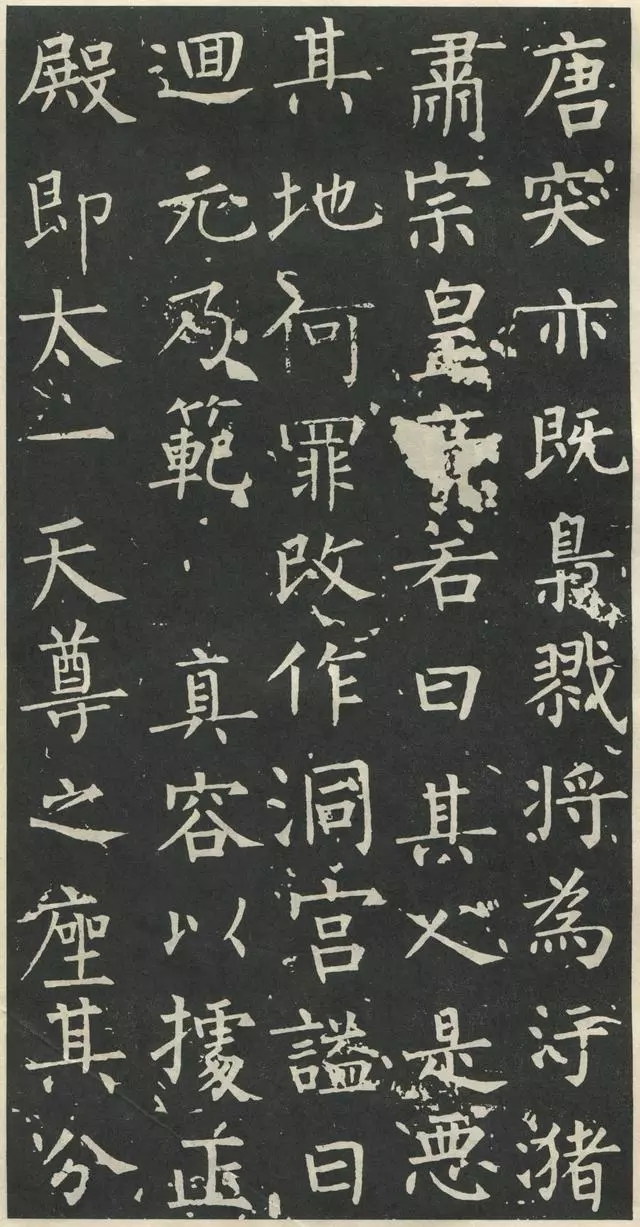 唐突亦既梟戮将為汙潴
肅宗皇帝若曰其人是惡
其地何罪改作洞宮謚曰
迴元乃範 真容以據正
殿即太一天尊之座其分